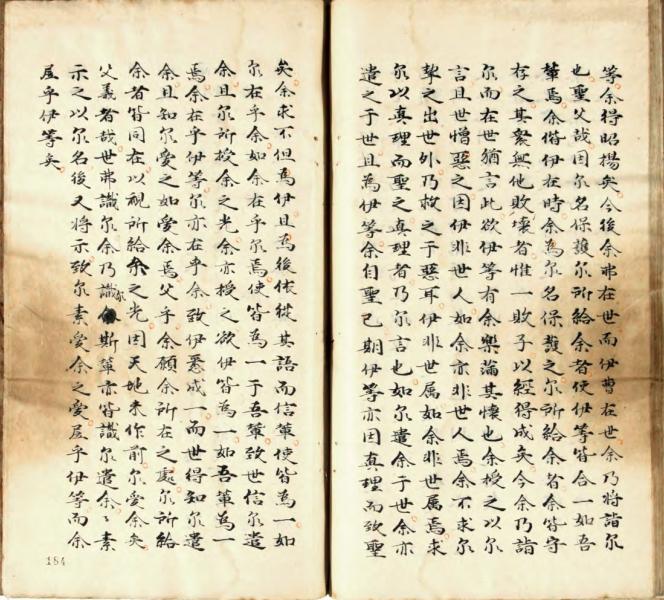 等余得昭揚矣今後余弗在世而伊曹在世余乃將詣尔
也聖父哉因尔名保護尔所給余者使伊等皆合一如吾
輩焉余偕伊在時余為尔名保護之尔所給余者余皆守
存之其衆無他敗壞者惟一敗子以經得成矣今余乃詣
尔而在世猶言此欲伊等有余樂滿其懷也余授之以尔
言且世憎惡之因伊非世人如余亦非世人焉余不求尔
挈之出世外乃救之于惡耳伊非世属如余非世属焉求
尔以真理而聖之真理者乃尔言也如尔遣余于世余亦
遣之于世且為伊等余自聖己期伊等亦因真理而致聖
矣余求不但為伊且為後依從其語而信輩使皆為一如
尔在乎余如余在乎尔焉使皆為一于吾輩致世信尔遣
余且尔所授余之光余亦授之欲伊皆為一如吾輩為一
焉余在乎伊等尔亦在乎余致伊悉成一而世得知尔遣
余且知尔愛之如愛余焉父乎余願余所在之處尔所給
余者皆同在以視所給余之光因天地未作前尔愛余矣
父義者哉世弗識尔余乃識尔斯輩亦皆識尔遣余〻素
示之以尔名後又將示致尔素愛余之愛居乎伊等而余
居乎伊等矣
184